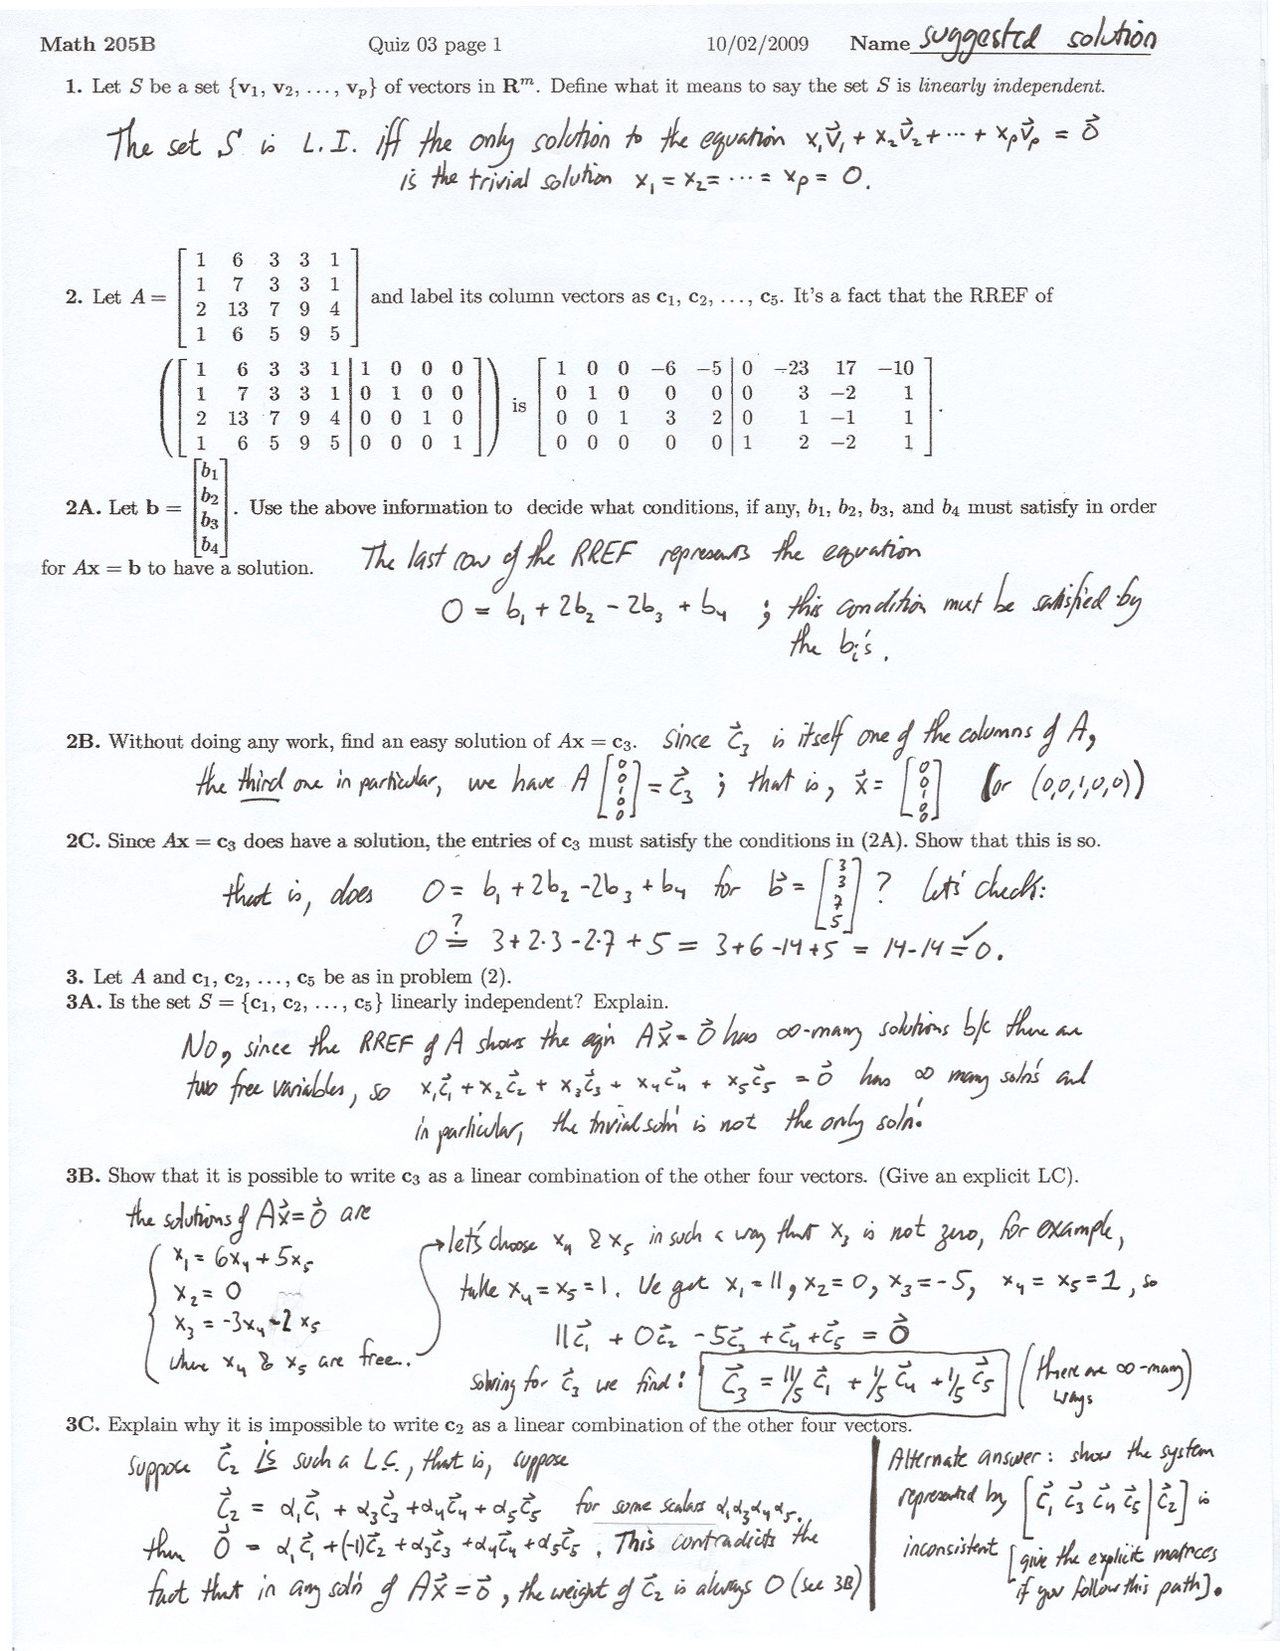 Math 205B Quiz 03 page 1 10/02/2009 Name suggested solution
1. Let S be a set {v₁, v₂, ..., vₚ} of vectors in Rᵐ. Define what it means to say the set S is linearly independent.
The set S is L.I. iff the only solution to the equation x₁v⃗₁ + x₂v⃗₂ + ··· + xₚv⃗ₚ = 0⃗
is the trivial solution x₁ = x₂ = ··· = xₚ = 0.
1 6 3 3 1
1 7 3 3 1
2. Let A = and label its column vectors as c₁, c₂, ..., c₅. It's a fact that the RREF of
2 13 7 9 4
1 6 5 9 5
1 6 3 3 1 | 1 0 0 0 1 0 0 −6 −5 | 0 −23 17 −10
1 7 3 3 1 | 0 1 0 0 0 1 0 0 0 | 0 3 −2 1
is
2 13 7 9 4 | 0 0 1 0 0 0 1 3 2 | 0 1 −1 1 .
1 6 5 9 5 | 0 0 0 1 0 0 0 0 0 | 1 2 −2 1
b₁
b₂
2A. Let b = . Use the above information to decide what conditions, if any, b₁, b₂, b₃, and b₄ must satisfy in order
b₃
b₄
for Ax = b to have a solution. The last row of the RREF represents the equation
0 = b₁ + 2b₂ − 2b₃ + b₄ ; this condition must be satisfied by
the bᵢ's.
2B. Without doing any work, find an easy solution of Ax = c₃. Since c⃗₃ is itself one of the columns of A,
the third one in particular, we have A [0 0 1 0 0] = c⃗₃ ; that is, x⃗ = [0 0 1 0 0] (or (0,0,1,0,0))
2C. Since Ax = c₃ does have a solution, the entries of c₃ must satisfy the conditions in (2A). Show that this is so.
that is, does 0 = b₁ + 2b₂ − 2b₃ + b₄ for b⃗ = [3 3 7 5] ? Let's check:
0 ≟ 3 + 2·3 − 2·7 + 5 = 3+6−14+5 = 14−14 = 0. ✓
3. Let A and c₁, c₂, ..., c₅ be as in problem (2).
3A. Is the set S = {c₁, c₂, ..., c₅} linearly independent? Explain.
No, since the RREF of A shows the eqn Ax⃗ = 0⃗ has ∞-many solutions b/c there are
two free variables, so x₁c⃗₁ + x₂c⃗₂ + x₃c⃗₃ + x₄c⃗₄ + x₅c⃗₅ = 0⃗ has ∞ many soln's and
in particular, the trivial soln is not the only soln.
3B. Show that it is possible to write c₃ as a linear combination of the other four vectors. (Give an explicit LC).
the solutions of Ax⃗ = 0⃗ are
x₁ = 6x₄ + 5x₅
x₂ = 0
x₃ = −3x₄ − 2x₅
where x₄ & x₅ are free.
→ let's choose x₄ & x₅ in such a way that x₃ is not zero, for example,
take x₄ = x₅ = 1. We get x₁ = 11, x₂ = 0, x₃ = −5, x₄ = x₅ = 1, so
11c⃗₁ + 0c⃗₂ − 5c⃗₃ + c⃗₄ + c⃗₅ = 0⃗
Solving for c⃗₃ we find: c⃗₃ = 11/5 c⃗₁ + 1/5 c⃗₄ + 1/5 c⃗₅ (there are ∞-many ways)
3C. Explain why it is impossible to write c₂ as a linear combination of the other four vectors.
Suppose c⃗₂ is such a LC., that is, suppose
c⃗₂ = α₁c⃗₁ + α₃c⃗₃ + α₄c⃗₄ + α₅c⃗₅ for some scalars α₁,α₃,α₄,α₅.
then 0⃗ = α₁c⃗₁ + (−1)c⃗₂ + α₃c⃗₃ + α₄c⃗₄ + α₅c⃗₅. This contradicts the
fact that in any soln of Ax⃗ = 0⃗, the weight of c⃗₂ is always 0 (see 3B)
Alternate answer: show the system
represented by [c⃗₁ c⃗₃ c⃗₄ c⃗₅ | c⃗₂] is
inconsistent [give the explicit matrices
if you follow this path].